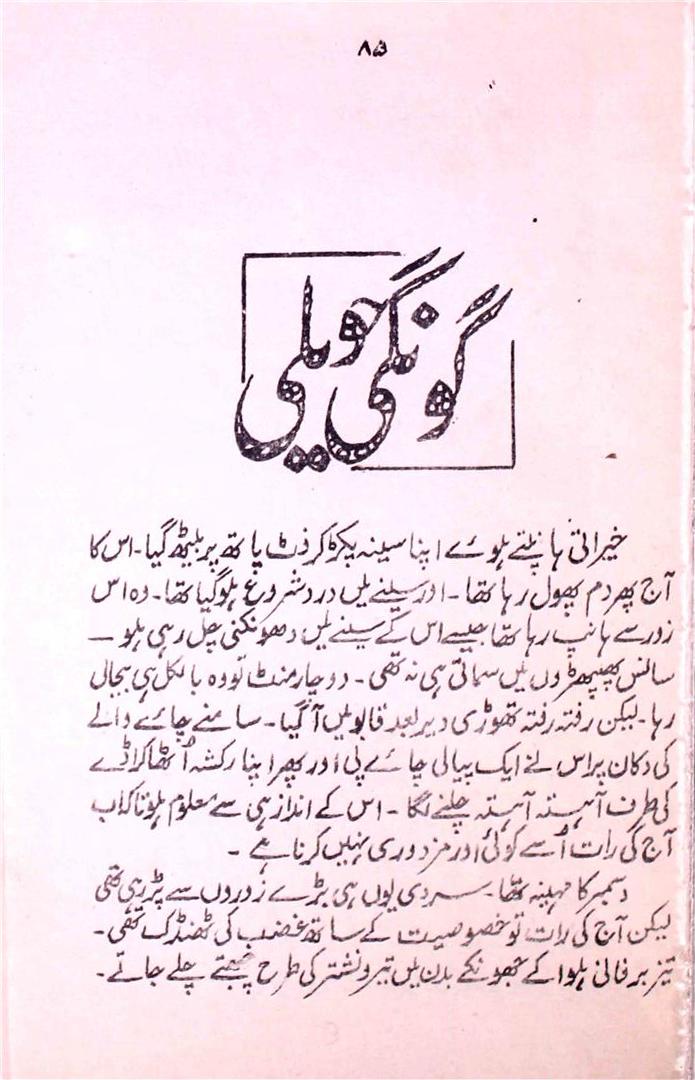 ۸۵
گونگی حویلی
خیراتی ہانپتے ہوئے اپنا سینہ پکڑ کر فٹ پاتھ پر بیٹھ گیا۔ اس کا
آج پھر دم پھول رہا تھا۔ اور سینے میں درد شروع ہوگیا تھا۔ وہ اس
زور سے ہانپ رہا تھا جیسے اس کے سینے میں دھونکنی چل رہی ہو۔
سانس پھیپھڑوں میں سماتی ہی نہ تھی۔ دو چار منٹ تو وہ بالکل ہی بیحال
رہا۔ لیکن رفتہ رفتہ تھوڑی دیر بعد قابو میں آگیا۔ سامنے چائے والے
کی دکان پر اس نے ایک پیالی چائے پی اور پھر اپنا رکشہ اُٹھا کر اڈے
کی طرف آہستہ آہستہ چلنے لگا۔ اس کے انداز ہی سے معلوم ہوتا کہ اب
آج کی رات اُسے کوئی اور مزدوری نہیں کرنا ہے۔
دسمبر کا مہینہ تھا۔ سردی یوں ہی بڑے زوروں سے پڑ رہی تھی
لیکن آج کی رات تو خصوصیت کے ساتھ غضب کی ٹھنڈک تھی۔
تیز برفانی ہوا کے جھونکے بدن میں تیر و نشتر کی طرح چبھتے چلے جاتے۔